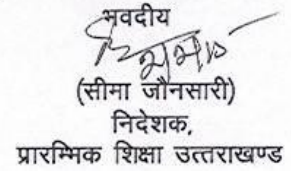 भवदीय
(सीमा जौनसारी)
निदेशक,
प्रारम्भिक शिक्षा उत्तराखण्ड